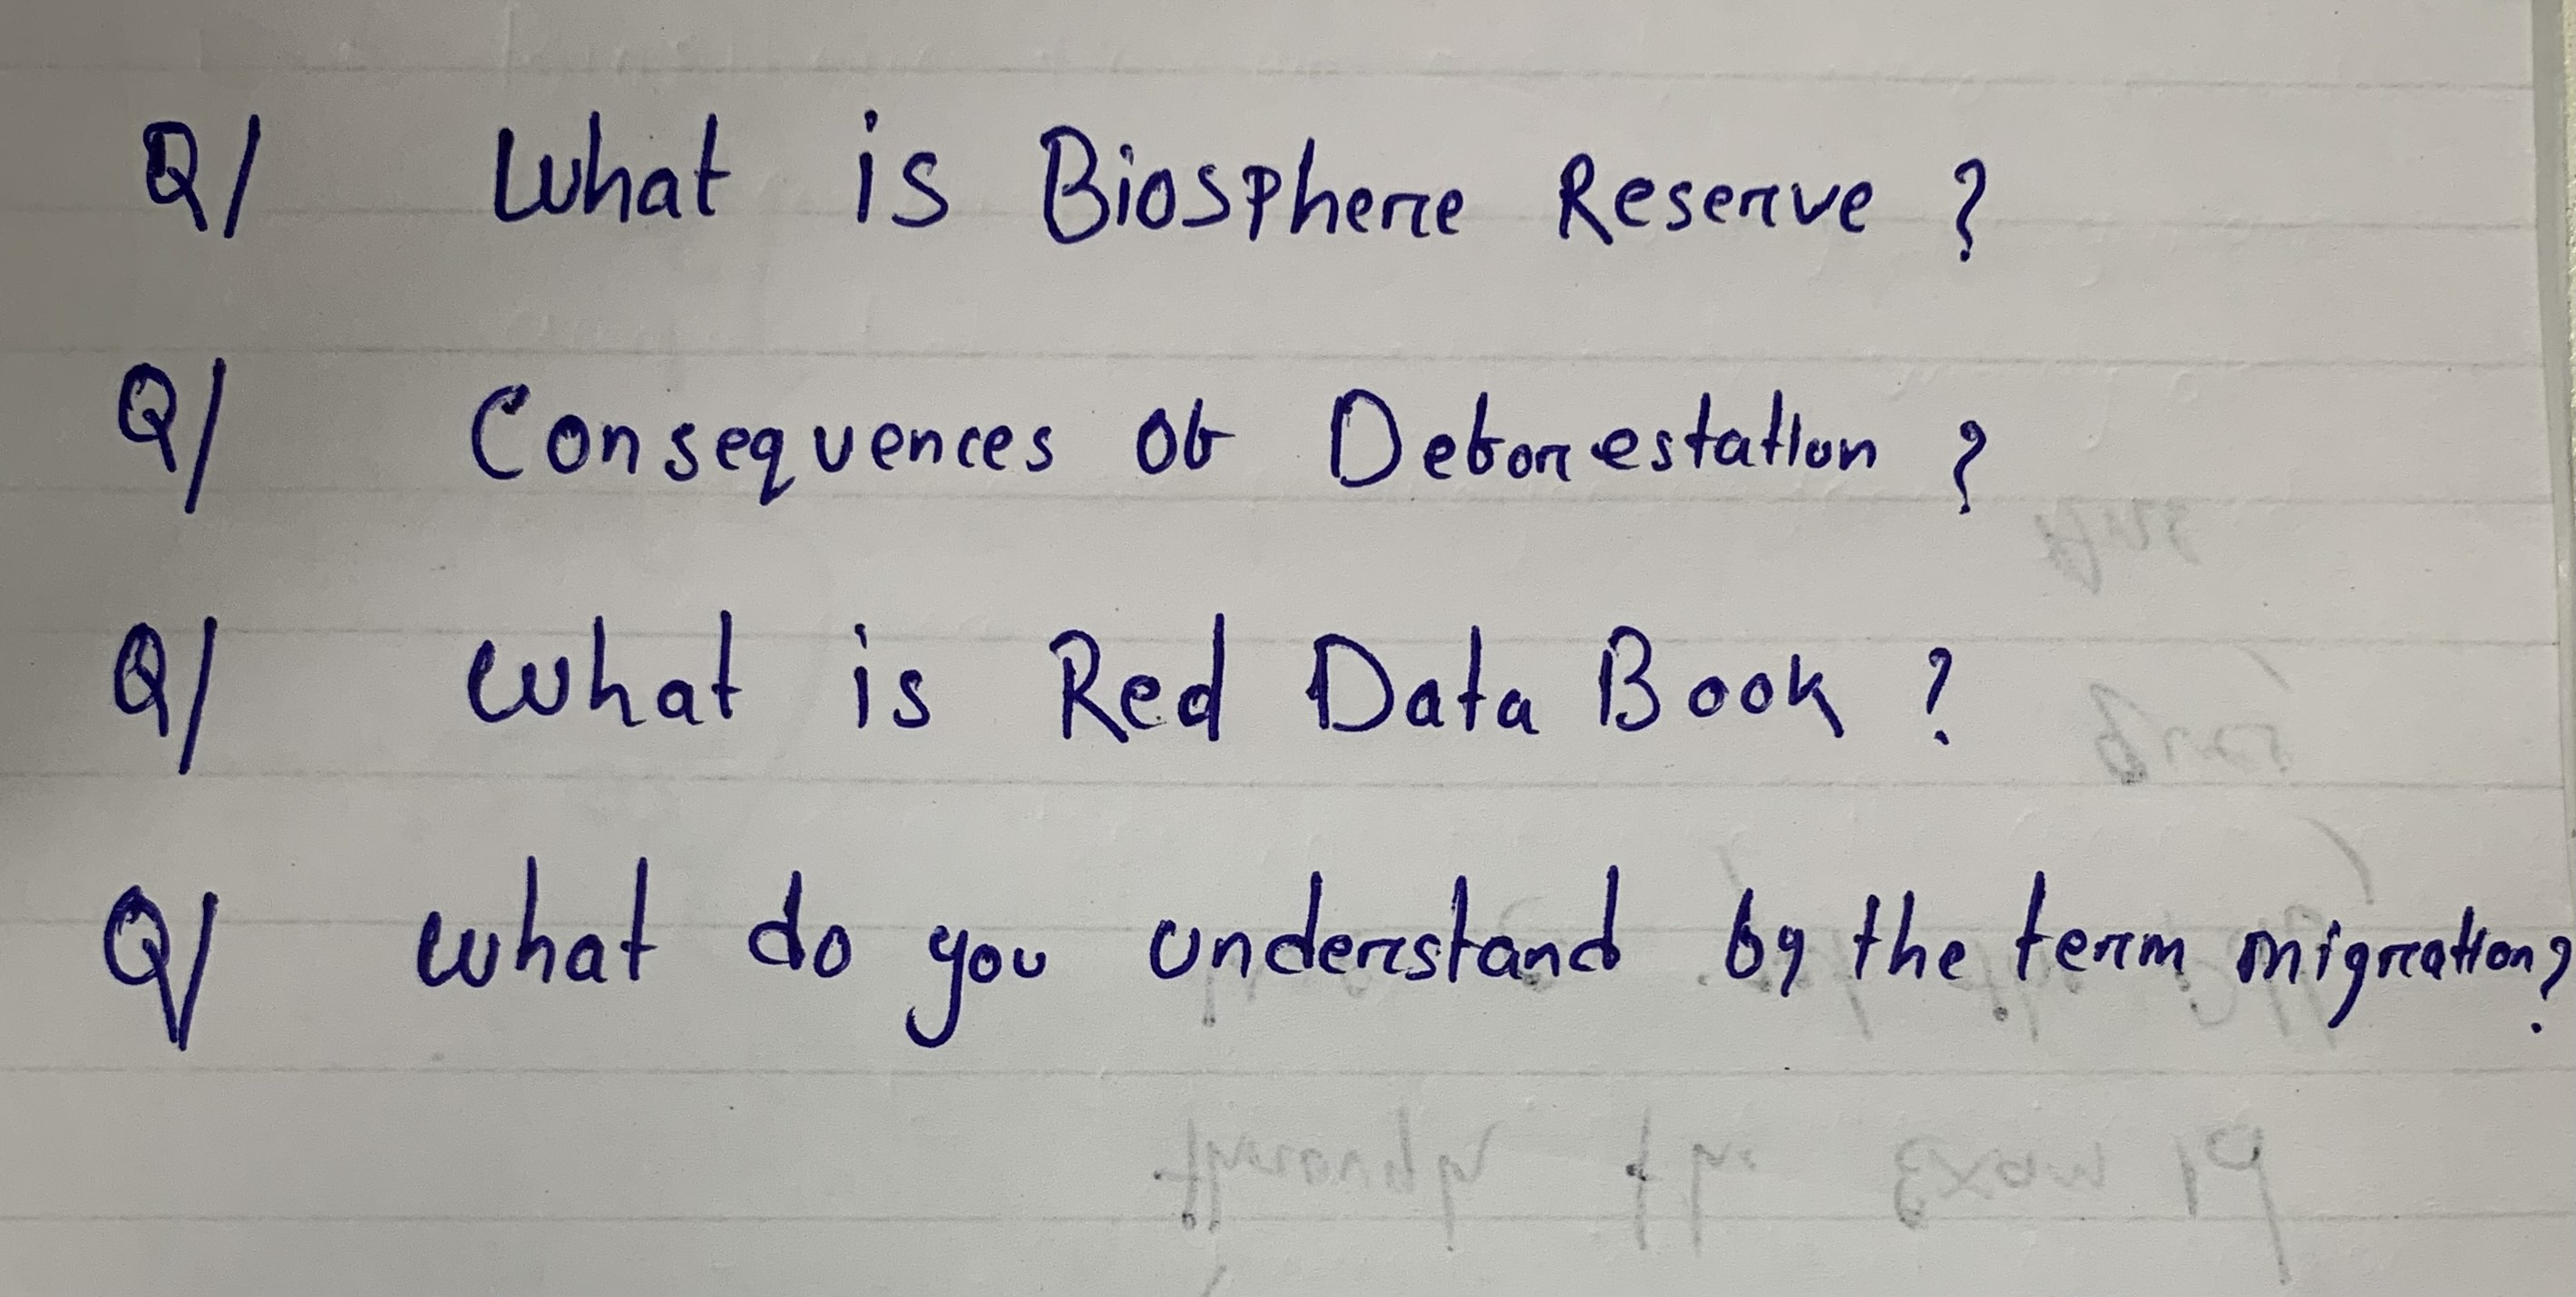 Q/ What is Biosphere Reserve ?
Q/ Consequences of Deforestation ?
Q/ What is Red Data Book ?
Q/ What do you understand by the term migration?